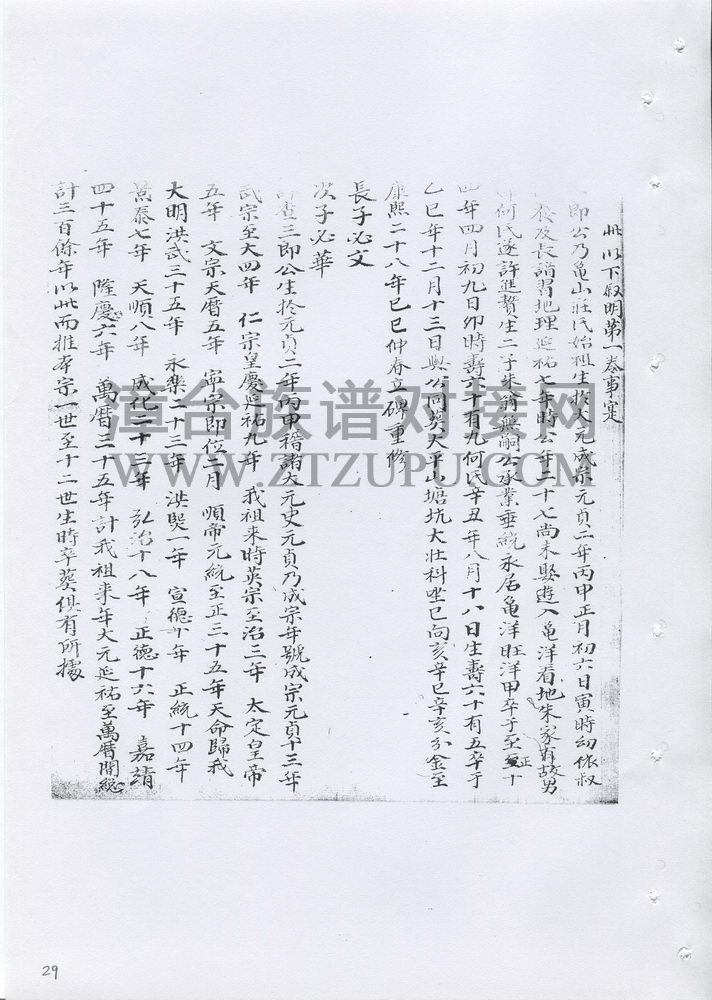 此以下叙明第一卷事寔
即公乃龜山莊氏始祖生於大元成宗元貞二年丙申正月初六日寅時幼依叔
及長諳習地理延祐七年時公年二十七尚未娶遊入龜洋看地朱家有故男
何氏遂許進贅生二子朱翁無嗣公承業垂統永居龜洋旺洋甲卒于至正十
四年四月初九日卯時壽六十有九何氏辛丑年八月十八日生壽六十有五卒于
乙巳年十二月十三日與公同葬大平山塘坑大壯科坐巳向亥辛巳辛亥分金至
康熙二十八年己巳仲春立碑重修
長子必文
次子必華
三即公生於元貞二年丙申稽諸大元史元貞乃成宗年號成宗元貞十三年
武宗至大四年 仁宗皇慶延祐九年 我祖来時英宗至治三年 太定皇帝
五年 文宗天曆五年 寧宗即位二月 順帝元統至正三十五年天命歸我
大明洪武三十五年 永樂二十三年 洪熙一年 宣德十年 正統十四年
景泰七年 天順八年 成化二十三年 弘治十八年 正德十六年 嘉靖
四十五年 隆慶六年 萬曆三十五年計我祖来年大元延祐至萬曆間總
計三百餘年以此而推本宗一世至十二世生時卒葬俱有所據
漳台族谱对接网
WWW.ZTZUPU.COM
29